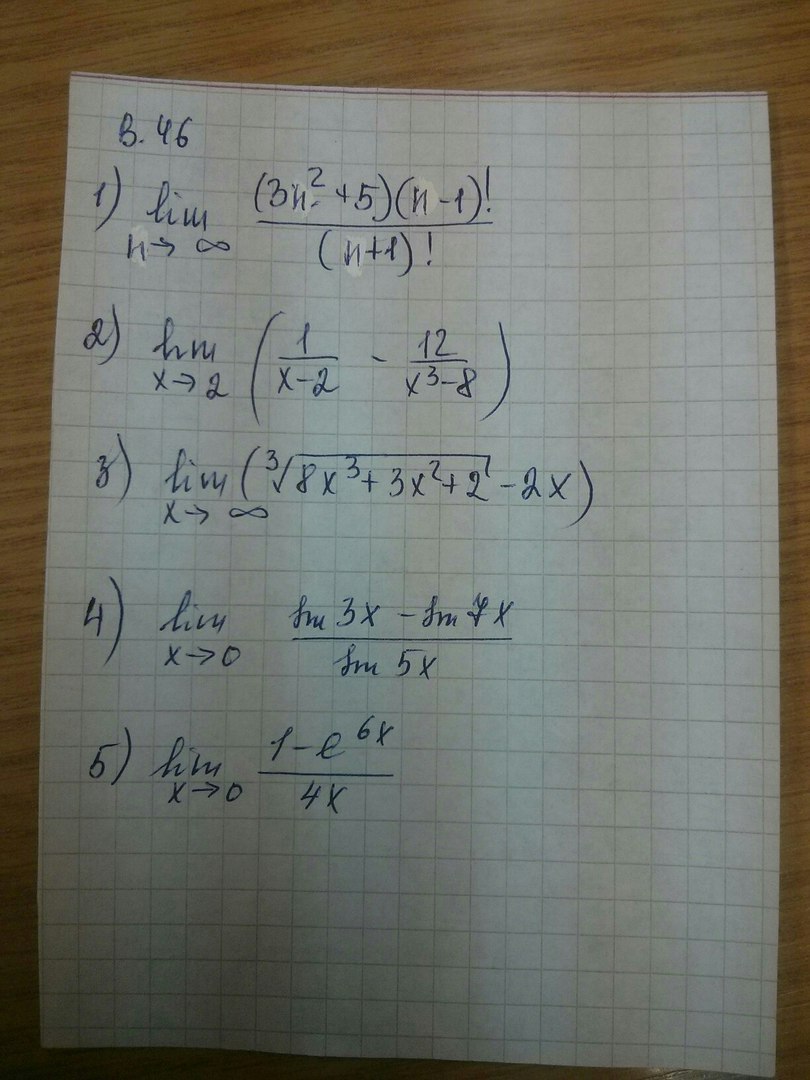 В. 46
1) lim n→∞ (3n²+5)(n-1)! / (n+1)!
2) lim x→2 (1/(x-2) - 12/(x³-8))
3) lim x→∞ (∛(8x³+3x²+2) - 2x)
4) lim x→0 (sin 3x - sin 7x) / (sin 5x)
5) lim x→0 (1-e^(6x)) / (4x)